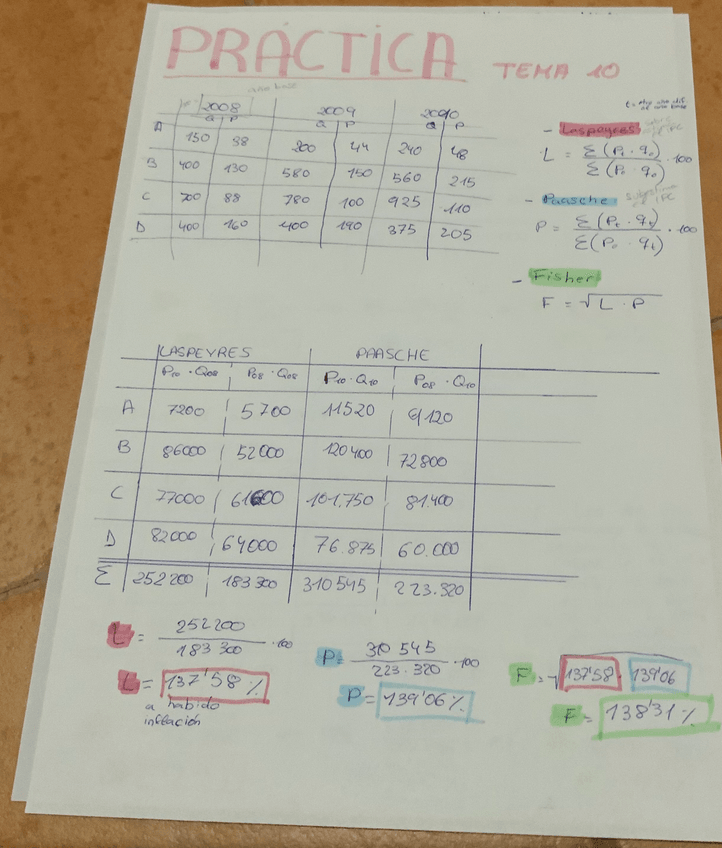 PRÁCTICA TEMA 10
año base
2008 2009 2010
Q P Q P Q P
A 150 38 200 44 240 48
B 400 130 580 150 560 215
C 700 88 780 100 925 110
D 400 160 400 190 375 205
- Laspeyres
L = Σ (Pt · q0) / Σ (P0 · q0) · 100
- Paasche
P = Σ (Pt · qt) / Σ (P0 · qt) · 100
- Fisher
F = √L · P
LASPEYRES PAASCHE
P10 · Q08 P08 · Q08 P10 · Q10 P08 · Q10
A 7200 5700 11520 9120
B 86000 52000 120400 72800
C 77000 61600 101.750 81.400
D 82000 64000 76.875 60.000
Σ 252200 183300 310545 223.320
L = 252200 / 183300 · 100
L = 137'58 %
a habido
inflación
P = 310545 / 223.320 · 100
P = 139'06 %
F = √137'58 · 139'06
F = 138'31 %